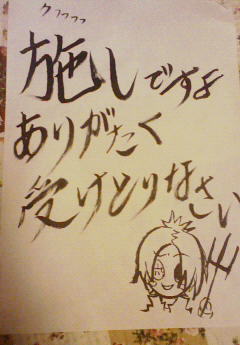 クフフフフ
施しですよ
ありがたく
受けとりなさい